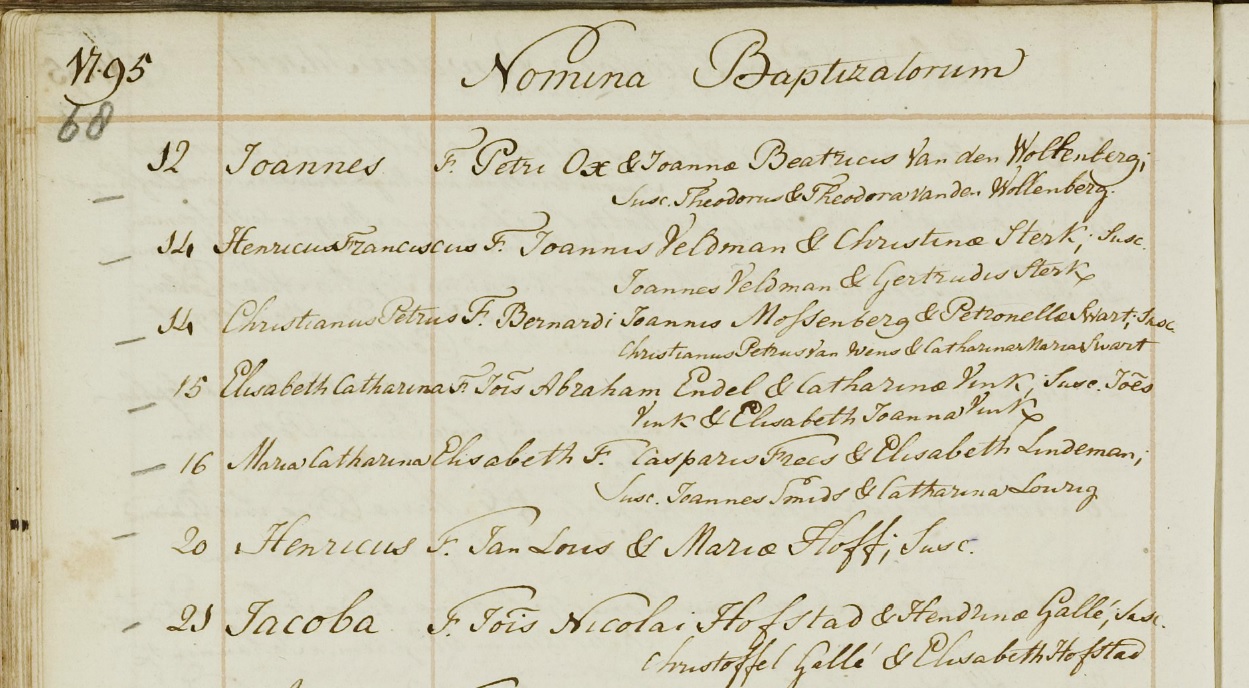 1795 Nomina Baptizatorum
68
12 Joannes F. Petri Ox & Joannæ Beatricis Van den Woltenberg;
Susc. Theodorus & Theodora van den Woltenberg.
14 Henricus Franciscus F. Joannis Veldman & Christinæ Sterk; Susc.
Joannes Veldman & Gertrudis Sterk
14 Christianus Petrus F. Bernardi Joannis Mossenberg & Petronellæ Swart; Susc.
Christianus Petrus Van Wens & Catharina Maria Swart
15 Elisabeth Catharina F. Jois Abraham Endel & Catharinæ Vink; Susc. Joês
Vink & Elisabeth Joanna Vink
16 Maria Catharina Elisabeth F. Casparis Frees & Elisabeth Lindeman;
Susc. Joannes Smids & Catharina Lowrig
20 Henricus F. Jan Lous & Mariæ Hoff; Susc.
21 Jacoba F. Jois Nicolai Hofstad & Hendrinæ Gallé; Susc.
Christoffel Gallé & Elisabeth Hofstad